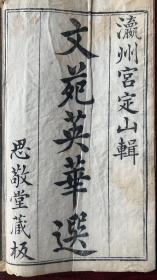 瀛州宮定山輯
文苑英華選
思敬堂藏板